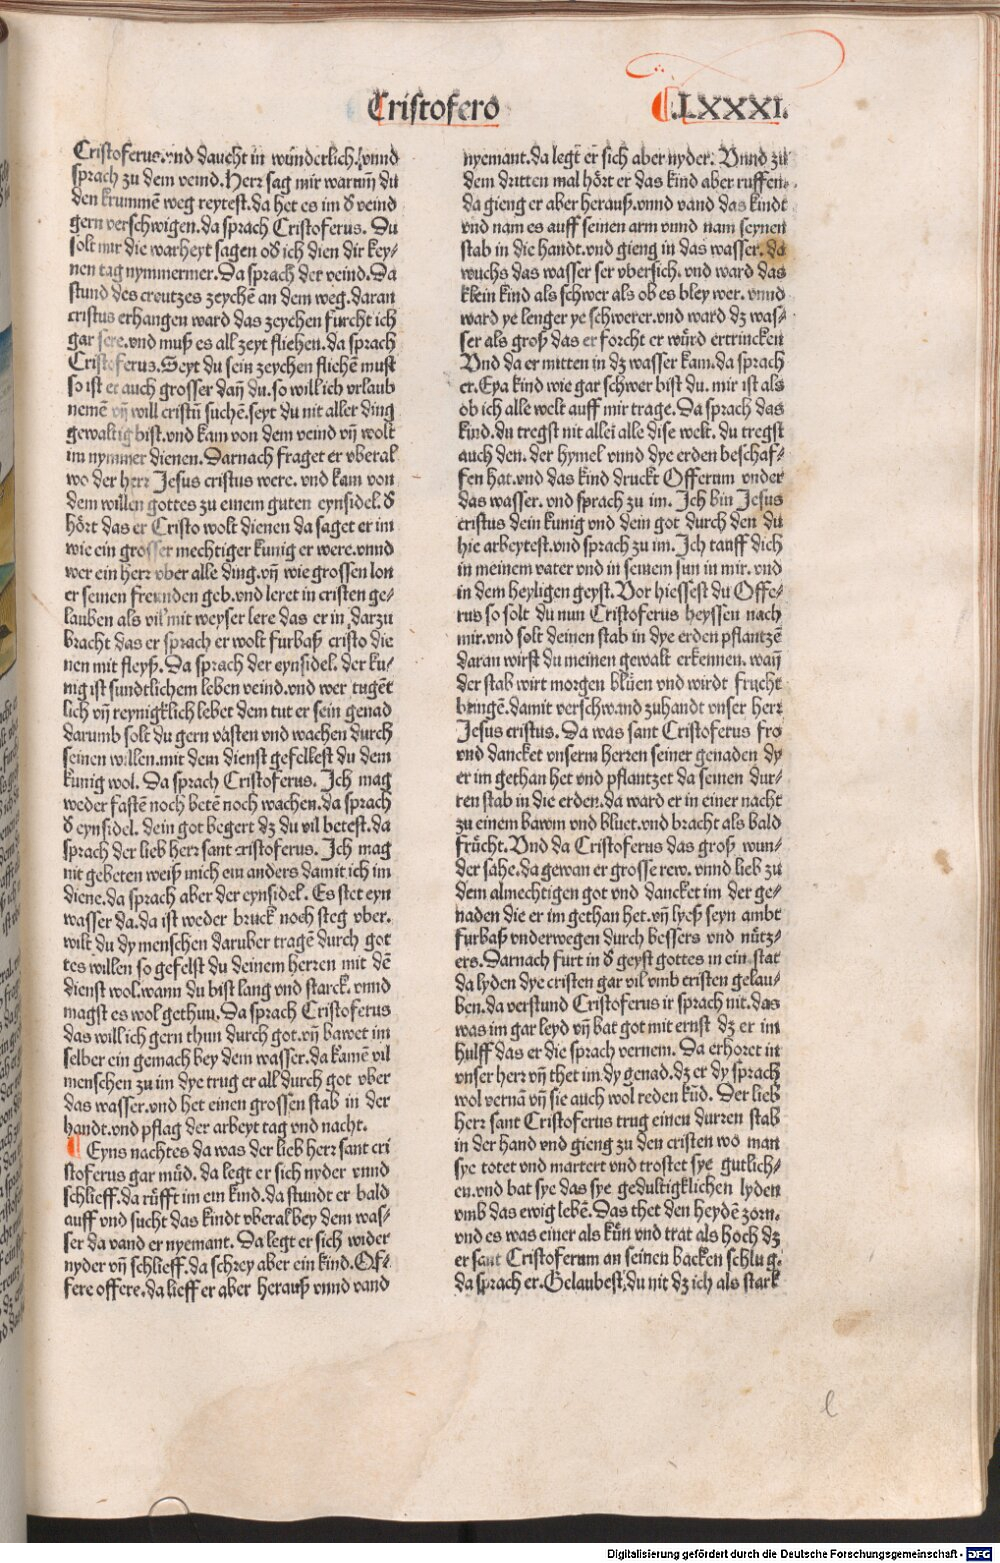 Cristofero
C.LXXXI.
Cristoferus.vnd daucht in wünderlich.vnnd
sprach zu dem veind.Herr sag mir warum̃ du
den krummẽ weg reytest.da het es im d̕ veind
gern verschwigen.da sprach Cristoferus. Du
solt mir die warheyt sagen od̕ ich dien dir key⸗
nen tag nymmermer.Da sprach der veind.Da
stund des creutzes zeychẽ an dem weg.daran
cristus erhangen ward das zeychen furcht ich
gar sere.vnd muß es all zeyt fliehen.da sprach
Cristoferus.Seyt du sein zeychen fliehẽ must
so ist er auch grosser dañ du.so will ich vrlaub
nemẽ vñ will cristũ suchẽ.seyt du nit aller ding
gewaltig bist.vnd kam von dem veind vñ wolt
im nymmer dienen.Darnach fraget er vberal
wo der herr Jesus cristus were. vnd kam von
dem willen gottes zu einem guten eynsidel.d̕
hört das er Cristo wolt dienen da saget er im
wie ein grosser mechtiger kunig er were.vnnd
wer ein herr vber alle ding.vñ wie grossen lon
er seinen freunden geb.vnd leret in cristen ge⸗
lauben als vil mit weyser lere das er in darzu
bracht das er sprach er wolt furbaß cristo die
nen mit fleyß.Da sprach der eynsidel. der ku⸗
nig ist sundtlichem leben veind.vnd wer tugẽt
lich vñ reynigklich lebet dem tut er sein genad
darumb solt du gern vasten vnd wachen durch
seinen willen.mit dem dienst gefellest du dem
kunig wol. Da sprach Cristoferus. Ich mag
weder fastẽ noch betẽ noch wachen.da sprach
d̕ eynsidel. dein got begert dz du vil betest.da
sprach der lieb herr sant cristoferus. Ich mag
nit gebeten weiß mich ein anders damit ich im
diene.da sprach aber der eynsidel. Es stet eyn
wasser da.da ist weder bruck noch steg vber.
wilt du dy menschen daruber tragẽ durch got
tes willen so gefelst du deinem herren mit dẽ
dienst wol.wann du bist lang vnd starck. vnnd
magst es wol gethun. Da sprach Cristoferus
das will ich gern thun durch got.vñ bawet im
selber ein gemach bey dem wasser.da kamẽ vil
menschen zu im dye trug er all durch got vber
das wasser.vnd het einen grossen stab in der
handt.vnd pflag der arbeyt tag vnd nacht.
¶ Eyns nachtes da was der lieb herr sant cri
stoferus gar müd. da legt er sich nyder vnnd
schlieff.da rüfft im ein kind.da stundt er bald
auff vnd sucht das kindt vberal bey dem was⸗
ser da vand er nyemant. Da legt er sich wider
nyder vñ schlieff.da schrey aber ein kind.Of⸗
fere offere.da lieff er aber herauß vnnd vand
nyemant.da legt er sich aber nyder. Vnnd zu
dem dritten mal hört er das kind aber ruffen.
da gieng er aber herauß.vnnd vand das kindt
vnd nam es auff seinen arm vnnd nam seynen
stab in die handt.vnd gieng in das wasser. da
wuchs das wasser ser vbersich. vnd ward das
klein kind als schwer als ob es bley wer. vnnd
ward ye lenger ye schwerer.vnd ward dz was⸗
ser als groß das er forcht er würd ertrincken
Vnd da er mitten in dz wasser kam.da sprach
er.Eya kind wie gar schwer bist du. mir ist als
ob ich alle welt auff mir trage. Da sprach das
kind.du tregst nit allei alle dise welt. du tregst
auch den. der hymel vnnd dye erden beschaf⸗
fen hat.vnd das kind druckt Offerum vnder
das wasser. vnd sprach zu im. Ich bin Jesus
cristus dein kunig vnd dein got durch den du
hie arbeytest.vnd sprach zu im. Ich tauff dich
in meinem vater vnd in seinem sun in mir. vnd
in dem heyligen geyst. Vor hiessest du Offe⸗
rus so solt du nun Cristoferus heyssen nach
mir.vnd solt deinen stab in dye erden pflantzẽ
daran wirst du meinen gewalt erkennen. wañ
der stab wirt morgen blüen vnd wirdt frucht
bringẽ.damit verschwand zuhandt vnser herr
Jesus cristus. Da was sant Cristoferus fro
vnd dancket vnserm herren seiner genaden dy
er im gethan het vnd pflantzet da seinen dur⸗
ren stab in die erden.da ward er in einer nacht
zu einem bawm vnd bluet.vnd bracht als bald
frücht. Vnd da Cristoferus das groß wun⸗
der sahe.da gewan er grosse rew. vnnd lieb zu
dem almechtigen got vnd dancket im der ge⸗
naden die er im gethan het.vñ lyeß seyn ambt
furbaß vnderwegen durch bessers vnd nütz⸗
ers.Darnach furt in d̕ geyst gottes in ein stat
da lyden dye cristen gar vil vmb cristen gelau⸗
ben.da verstund Cristoferus ir sprach nit.das
was im gar leyd vñ bat got mit ernst dz er im
hulff das er die sprach vernem. Da erhoret in
vnser herr vñ thet im dy genad.dz er dy sprach
wol vernã vñ sie auch wol reden kũd. Der lieb
herr sant Cristoferus trug einen durren stab
in der hand vnd gieng zu den cristen wo man
sye totet vnd martert vnd trostet sye gutlich⸗
en.vnd bat sye das sye gedultigklichen lyden
vmb das ewig lebẽ. Das thet den heydẽ zorn.
vnd es was einer als kün vnd trat als hoch dz
er sant Cristoferum an seinen backen schlug.
da sprach er.Gelaubest du nit dz ich als stark
l
Digitalisierung gefördert durch die Deutsche Forschungsgemeinschaft - DFG